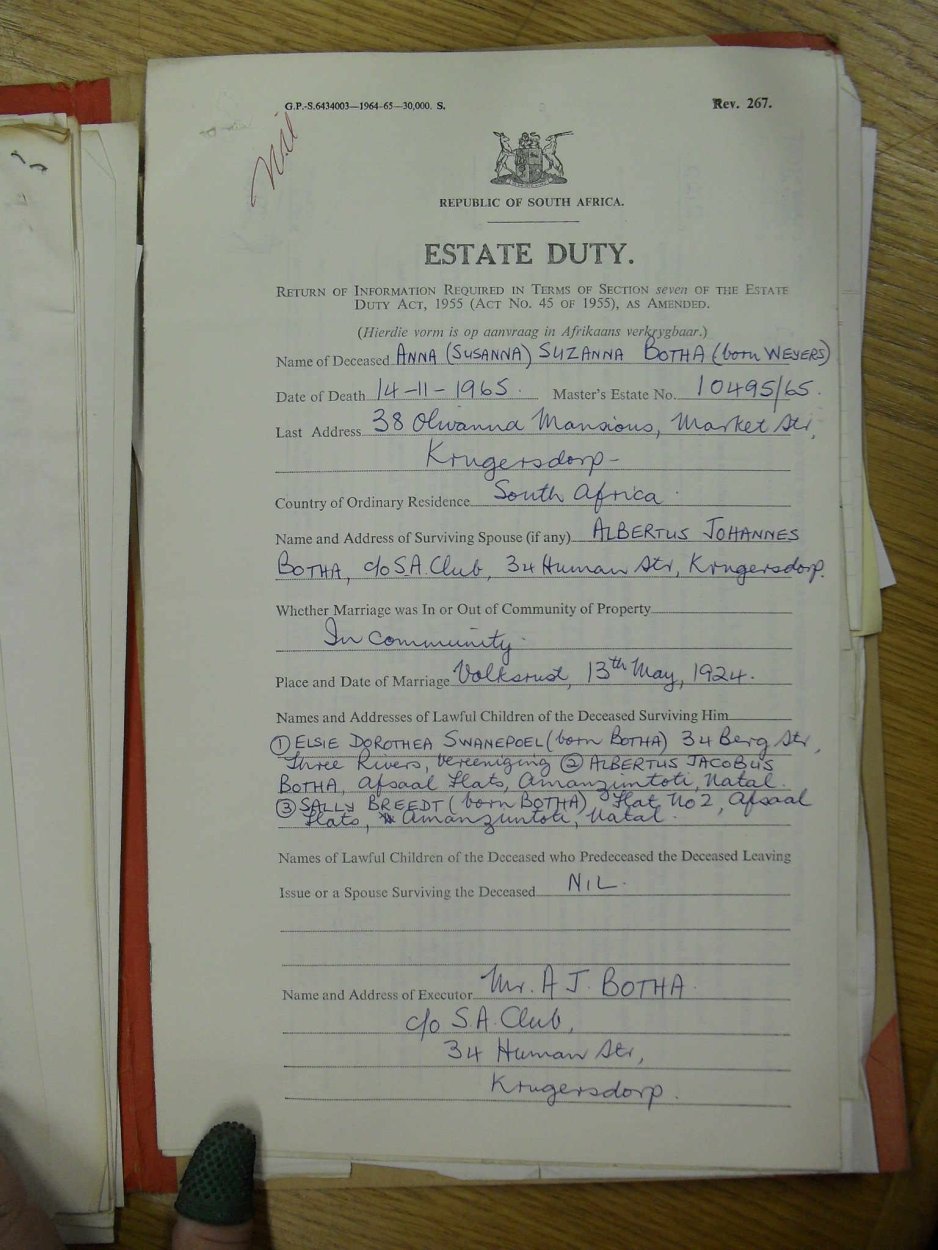 G.P.-S.6434003—1964-65—30,000. S.
Rev. 267.
Nil
REPUBLIC OF SOUTH AFRICA.
ESTATE DUTY.
RETURN OF INFORMATION REQUIRED IN TERMS OF SECTION seven OF THE ESTATE
DUTY ACT, 1955 (ACT NO. 45 OF 1955), AS AMENDED.
(Hierdie vorm is op aanvraag in Afrikaans verkrygbaar.)
Name of Deceased ANNA (SUSANNA) SUZANNA BOTHA (born WEYERS)
Date of Death 14-11-1965. Master's Estate No. 10495/65.
Last Address 38 Olivanna Mansions, Market Str,
Krugersdorp-
Country of Ordinary Residence South Africa.
Name and Address of Surviving Spouse (if any) ALBERTUS JOHANNES
BOTHA, c/o S.A. Club, 34 Human Str, Krugersdorp.
Whether Marriage was In or Out of Community of Property
In community.
Place and Date of Marriage Volksrust, 13th May, 1924.
Names and Addresses of Lawful Children of the Deceased Surviving Him
① ELSIE DOROTHEA SWANEPOEL (born BOTHA) 34 Berg Str,
Three Rivers, Vereeniging ② ALBERTUS JACOBUS
BOTHA, Afsaal Flats, Amanzimtoti, Natal.
③ SALLY BREEDT (born BOTHA), Flat No 2, Afsaal
Flats, Amanzimtoti, Natal.
Names of Lawful Children of the Deceased who Predeceased the Deceased Leaving
Issue or a Spouse Surviving the Deceased NIL.
Name and Address of Executor Mr. A J. BOTHA.
c/o S.A. Club,
34 Human Str,
Krugersdorp.